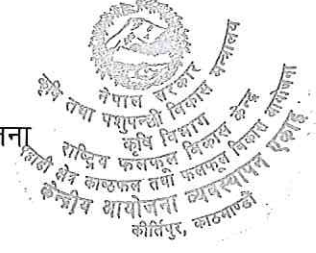 नेपाल सरकार
कृषि तथा पशुपन्छी विकास मन्त्रालय
कृषि विभाग
राष्ट्रिय फलफूल विकास केन्द्र
पहाडी क्षेत्र काष्ठफल तथा फलफूल विकास आयोजना
केन्द्रीय आयोजना व्यवस्थापन एकाई
कीर्तिपुर, काठमाण्डौ
जना